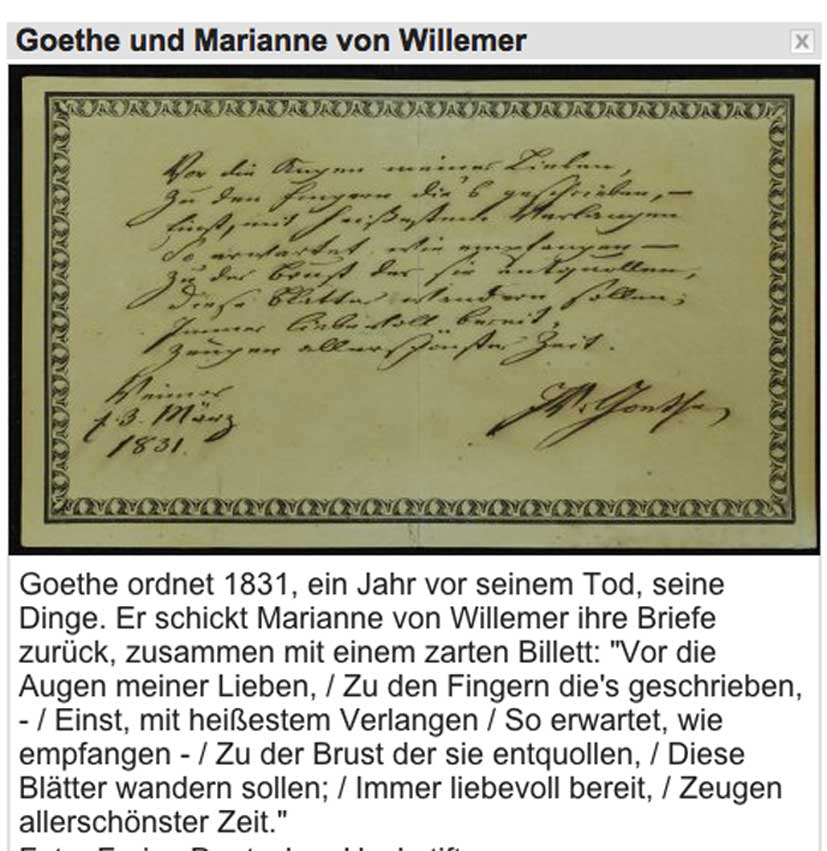 Goethe und Marianne von Willemer
x
Vor die Augen meiner Lieben,
Zu den Fingern die's geschrieben, –
Einst, mit heißestem Verlangen
So erwartet, wie empfangen –
Zu der Brust der sie entquollen,
Diese Blätter wandern sollen;
Immer liebevoll bereit,
Zeugen allerschönster Zeit.
Weimar
d. 3. März
1831.
JWvGoethe
Goethe ordnet 1831, ein Jahr vor seinem Tod, seine
Dinge. Er schickt Marianne von Willemer ihre Briefe
zurück, zusammen mit einem zarten Billett: "Vor die
Augen meiner Lieben, / Zu den Fingern die's geschrieben,
- / Einst, mit heißestem Verlangen / So erwartet, wie
empfangen - / Zu der Brust der sie entquollen, / Diese
Blätter wandern sollen; / Immer liebevoll bereit, / Zeugen
allerschönster Zeit."